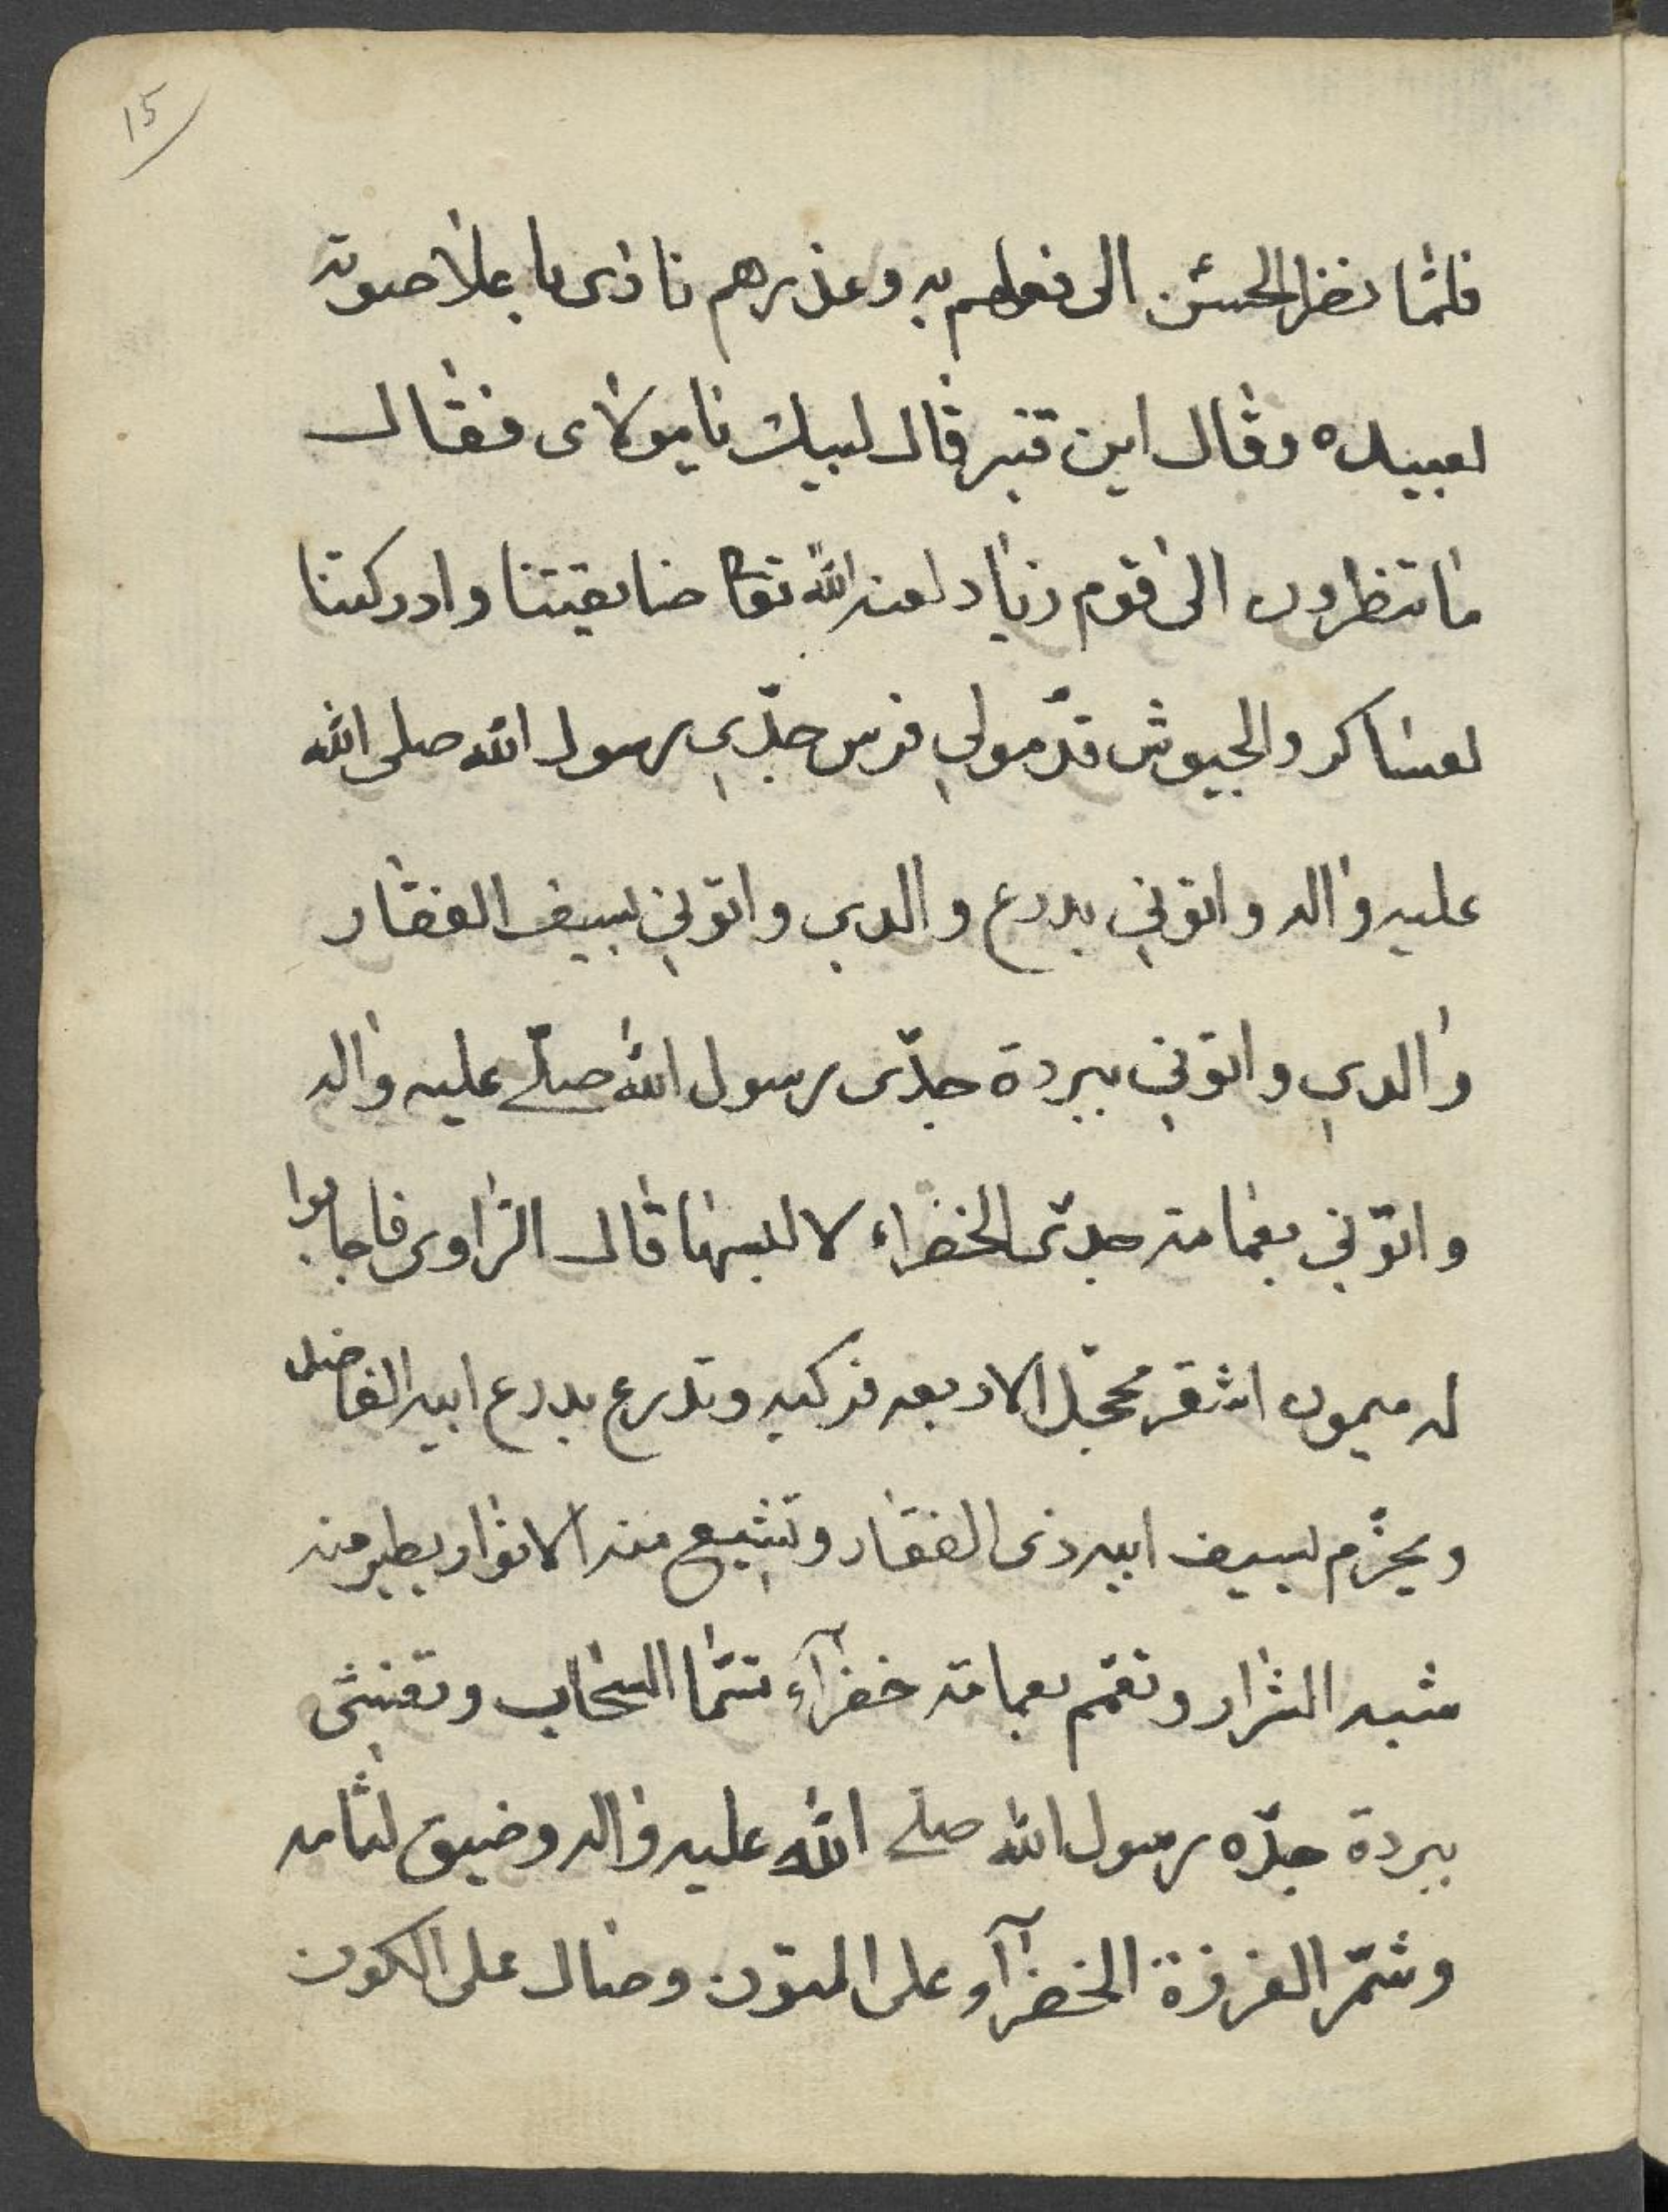 15
فلمّا نظر الحسن الى فعلهم به وعذرهم نادى باعلا صوته
لعبيده وقال اين قنبر قال لبيك يا مولاى فقال
ما تنظرون الى قوم زياد لعنه الله تعا ضايقتنا وادركتنا
لعساكر والجيوش قدّمولي فرس جدّي رسول الله صلى الله
عليه واله واتوني بدرع والدي واتوني بسيف الفقار
والدي واتوني ببردة جدّى رسول الله صلّے عليه واله
واتوني بعمامة جدّى الخضراء لا للبسها قال الراوى فاجابوا
له ميمون اشقر محجّل الاربعه فركبه وتدرع بدرع ابيه الفاضل
ويحزّم بسيف ابيه ذى الفقار وتشيع منه الانوار يطير منه
شبه الشرار وتعمّم بعمامة خضرآء تسمّا السحاب وتغشى
ببردة جدّه رسول الله صلے الله عليه واله وضيق لثامه
وشمّر الغرزة الخضرآء على المتون وصال على الكون